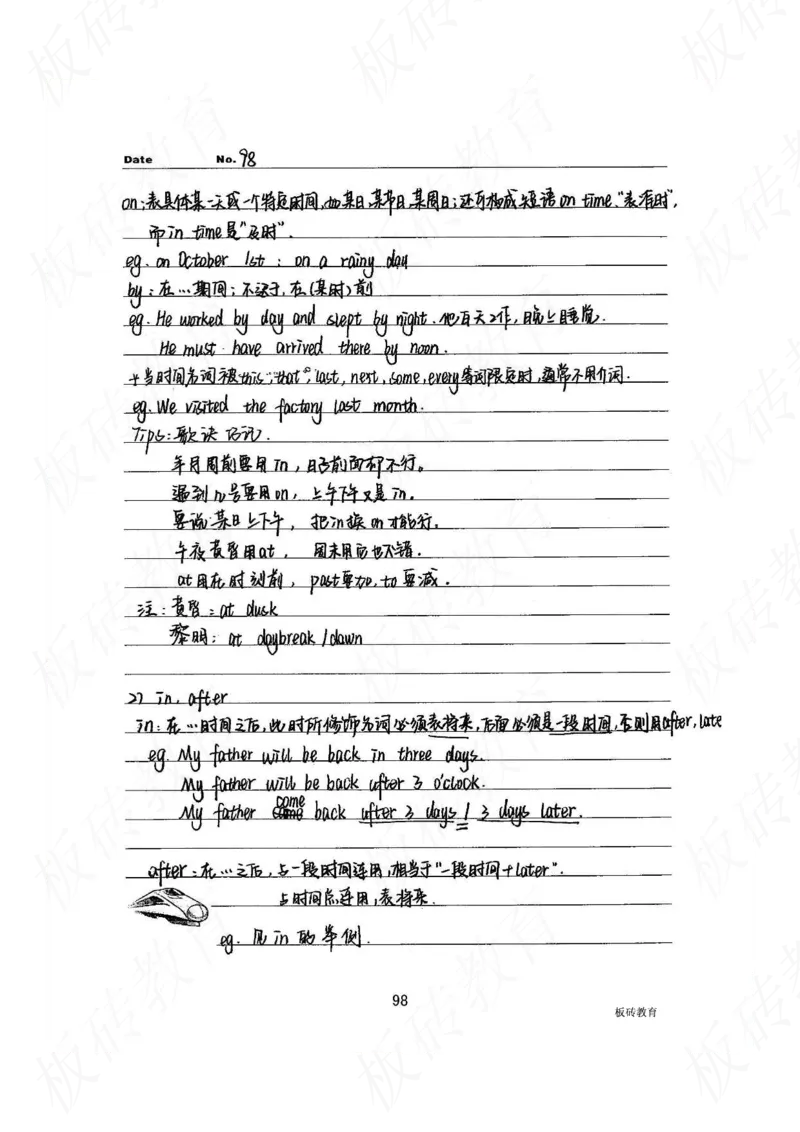 Date No. 98
on:表具体某一天或一个特定时间,如某日,某节日,某周日;还可构成短语on time."表准时",
而in time是"及时".
eg. on October 1st : on a rainy day
by:在…期间;不迟于,在(某时)前
eg. He worked by day and slept by night. 他白天工作,晚上睡觉.
He must have arrived there by noon.
当时间名词被this, that, last, next, some, every等词限定时,通常不用介词.
eg. We visited the factory last month.
Tips:歌诀巧记.
年月周前要用in,日子前面却不行。
遇到几号要用on,上午下午又是in。
要说某日上下午,把in换on才能行。
午夜黄昏用at,周末用它也不错.
at用在时刻前,past要加,to要减.
注:黄昏:at dusk
黎明:at daybreak / dawn
2) in, after
in:在…时间之后,此时所修饰名词必须表将来,后面必须是一段时间,否则用after, late
eg. My father will be back in three days.
My father will be back after 3 o'clock.
My father come back after 3 days / 3 days later.
after:在…之后,与一段时间连用,相当于"一段时间+later".
与时间点连用,表将来.
eg. 见in的举例.
98
板砖教育